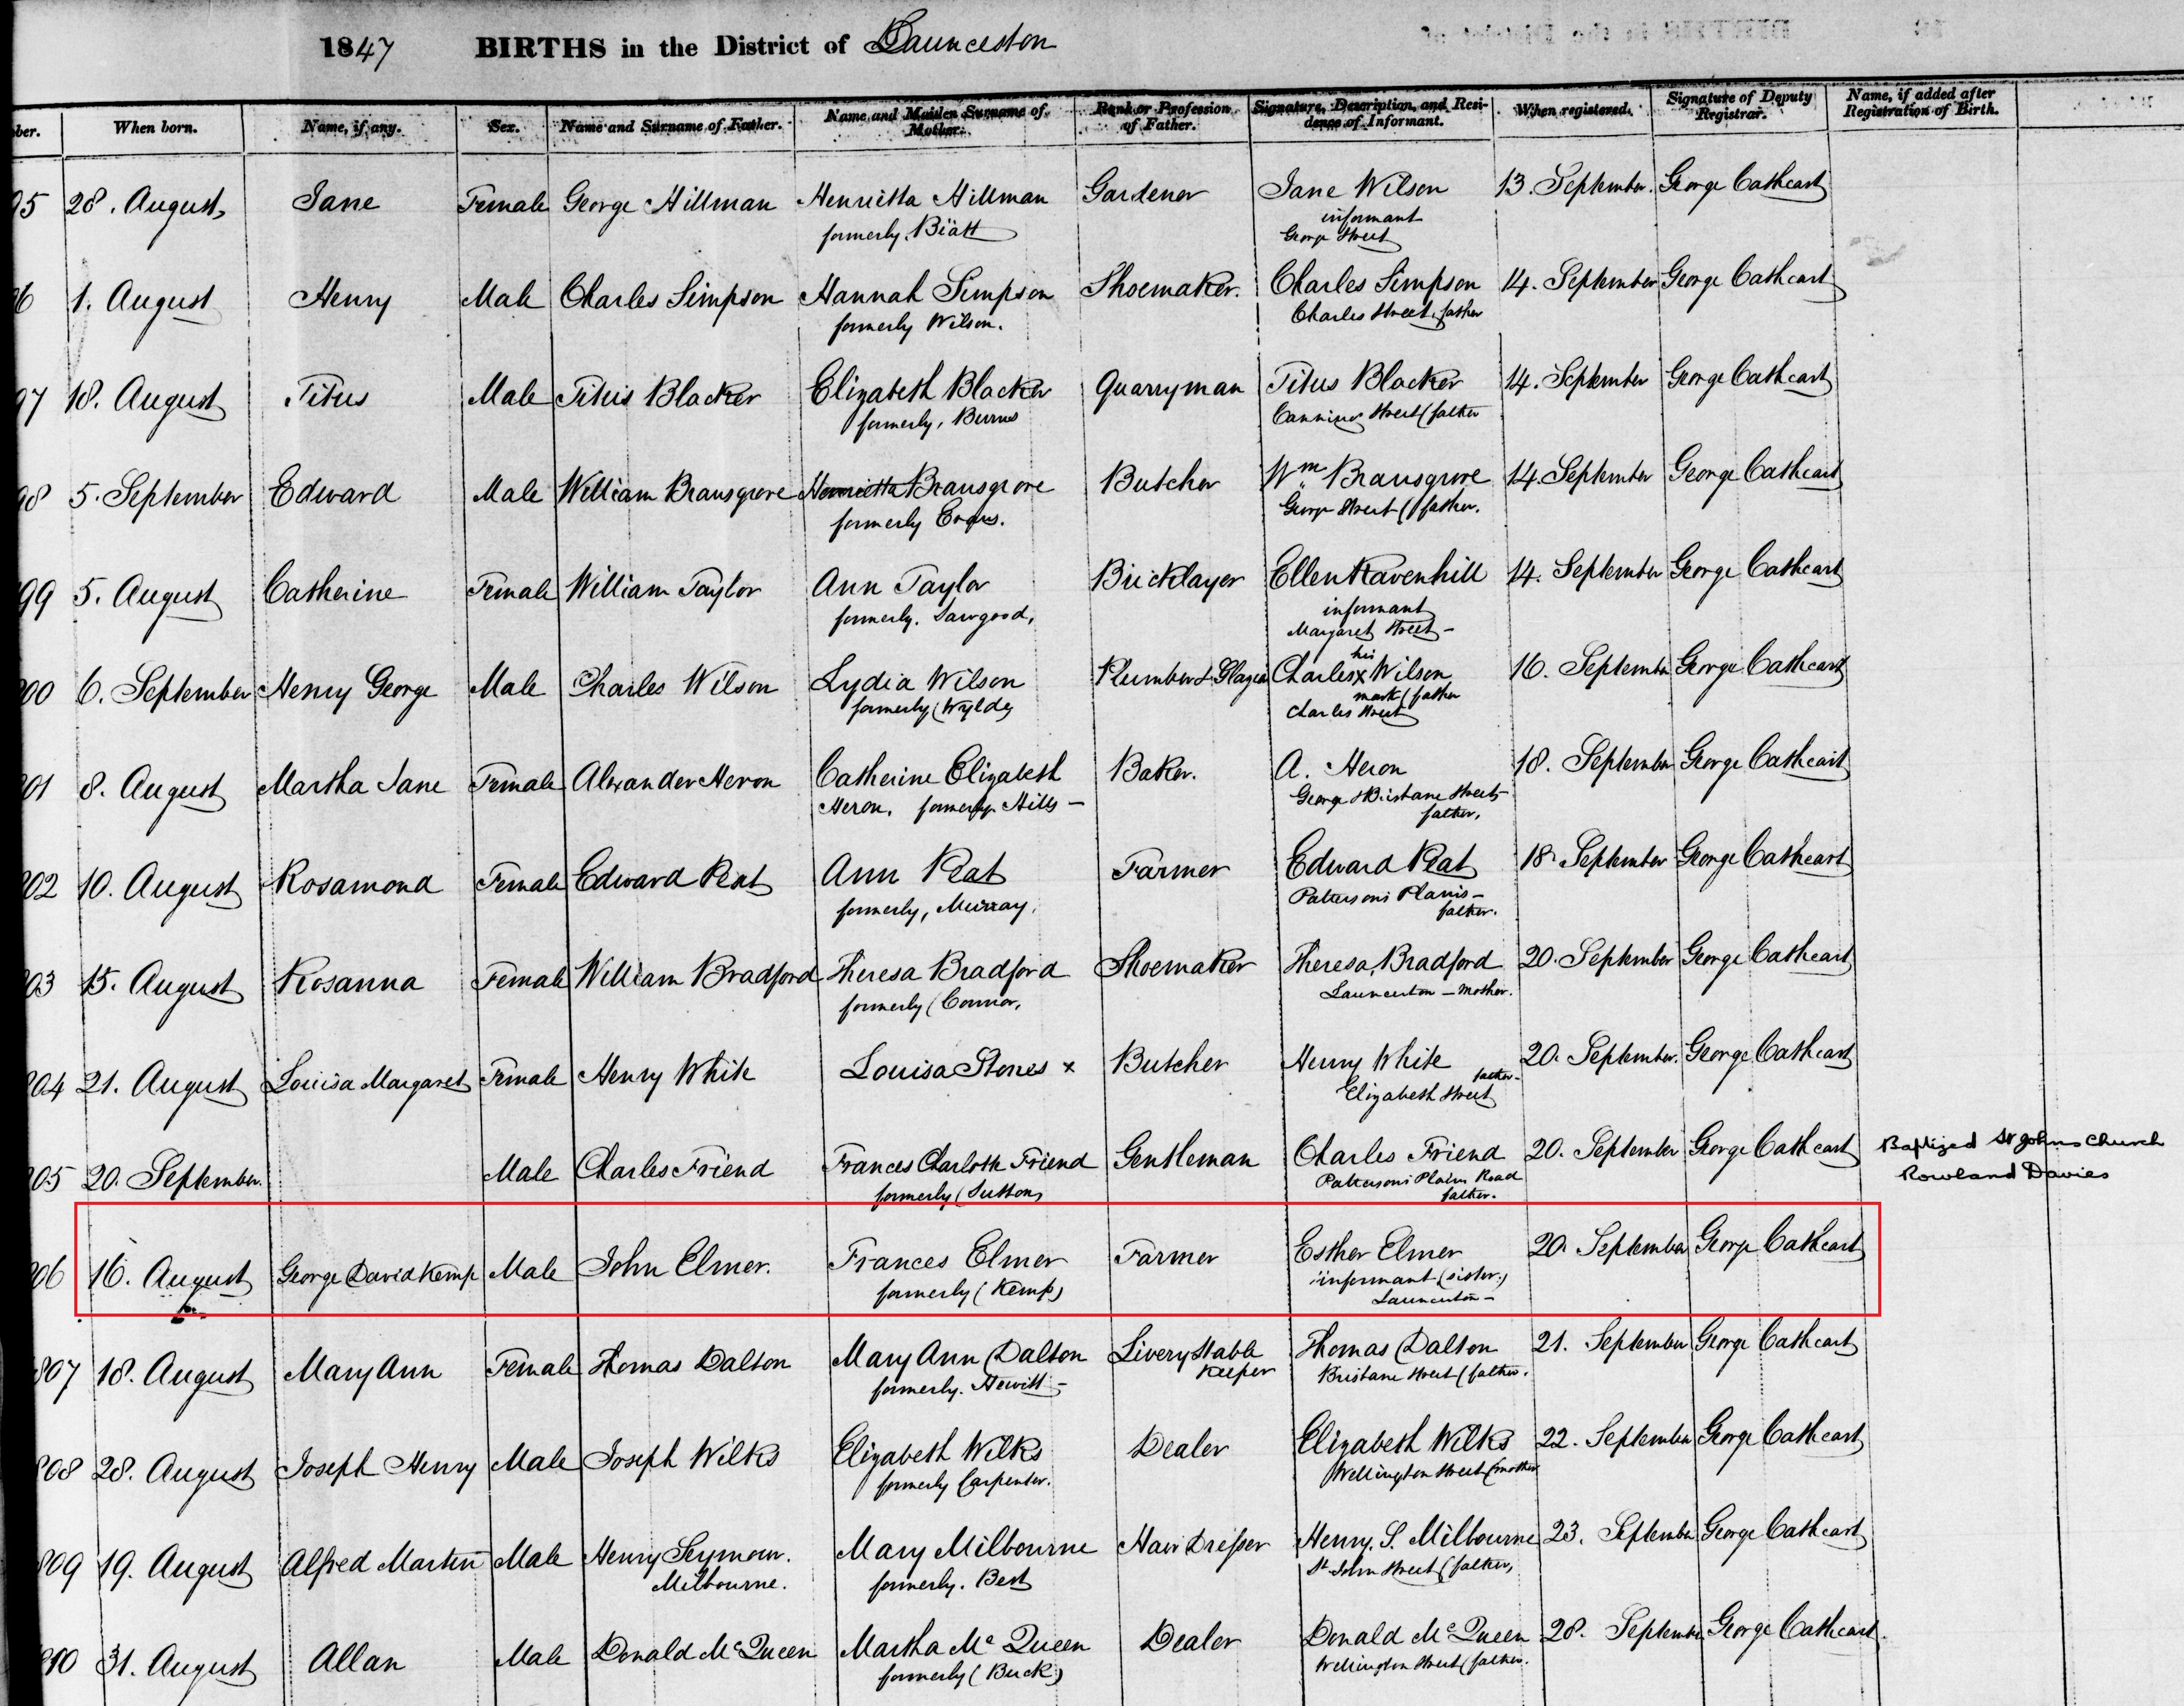 1847 BIRTHS in the District of Launceston
ber. When born. Name, if any. Sex. Name and Surname of Father. Name and Maiden Surname of Mother. Rank or Profession of Father. Signature, Description, and Residence of Informant. When registered. Signature of Deputy Registrar. Name, if added after Registration of Birth.
95 28. August Jane Female George Hillman Henrietta Hillman Gardener Jane Wilson 13. September. George Cathcart
formerly informant
George Street
96 1. August Henry Male Charles Simpson Hannah Simpson Shoemaker. Charles Simpson 14. September George Cathcart
formerly Wilson. Charles Street, father
97 18. August Titus Male Titus Blacker Elizabeth Blacker Quarryman Titus Blacker 14. September George Cathcart
formerly, Burns Canning Street (father
98 5. September Edward Male William Bransgrove Henrietta Bransgrove Butcher Wm Bransgrove 14. September George Cathcart
formerly George Street (father.
99 5. August Catherine Female William Taylor Ann Taylor Bricklayer Ellen Ravenhill 14. September George Cathcart
formerly. Sawgood, informant
Margaret Street -
00 6. September Henry George Male Charles Wilson Lydia Wilson Plumber & Glazier Charles his x Wilson 16. September George Cathcart
formerly (Wylde) mark (father
Charles Street
01 8. August Martha Jane Female Alexander Heron Catherine Elizabeth Baker. A. Heron 18. September George Cathcart
Heron. formerly Hills - George & Brisbane Streets
father.
02 10. August Rosamond Female Edward Peat Ann Peat Farmer Edward Peat 18. September George Cathcart
formerly, Murray. Pattersons Plains -
father.
03 15. August Rosanna Female William Bradford Theresa Bradford Shoemaker Theresa Bradford 20. September George Cathcart
formerly (Connor, Launceston - mother.
804 21. August Louisa Margaret Female Henry White Louisa Stones x Butcher Henry White 20. September. George Cathcart
father -
Elizabeth Street
805 20. September. Male Charles Friend Frances Charlotte Friend Gentleman Charles Friend 20. September George Cathcart Baptized St Johns Church
formerly (Sutton) Pattersons Plains Road Rowland Davies
father.
806 16. August George David Kemp Male John Elmer. Frances Elmer Farmer Esther Elmer 20. September George Cathcart
formerly (Kemp) informant (sister.)
Launceston -
807 18. August Mary Ann Female Thomas Dalton Mary Ann Dalton Livery Stable Keeper Thomas Dalton 21. September George Cathcart
formerly. Hewitt - Brisbane Street (father.
808 28. August Joseph Henry Male Joseph Wilks Elizabeth Wilks Dealer Elizabeth Wilks 22. September George Cathcart
formerly Carpenter. Wellington Street (mother
809 19. August Alfred Martin Male Henry Seymour. Milbourne. Mary Milbourne Hair Dresser Henry. S. Milbourne 23. September George Cathcart
formerly. Best St John Street (father,
810 31. August Allan Male Donald McQueen Martha McQueen Dealer Donald McQueen 28. September George Cathcart.
formerly (Buck) Wellington Street (father.